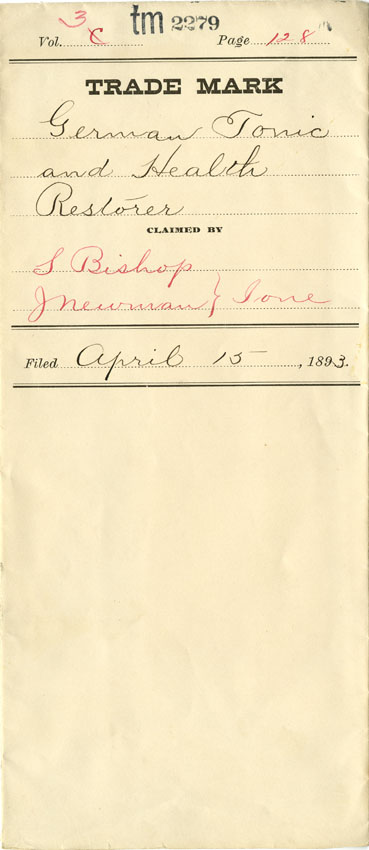 tm 2279
Vol. 3 C Page 128
TRADE MARK
German Tonic
and Health
Restorer
CLAIMED BY
S Bishop
J Newman } Ione
Filed April 15, 1893.